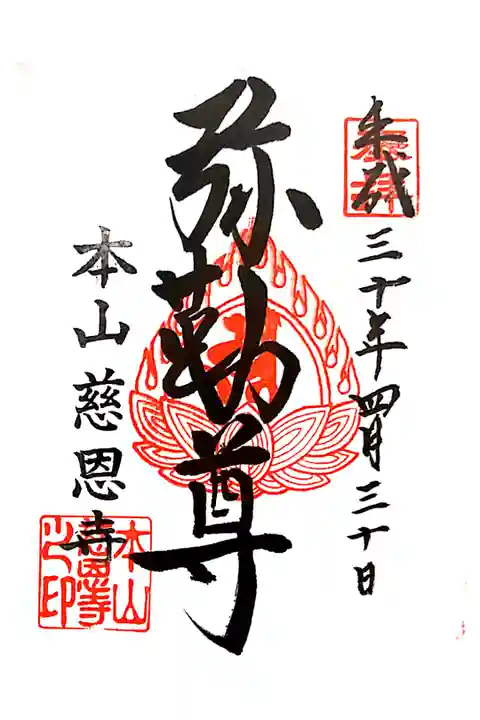 奉拝
三十年四月三十日
弥勒尊
本山慈恩寺
本山
慈恩寺
之印